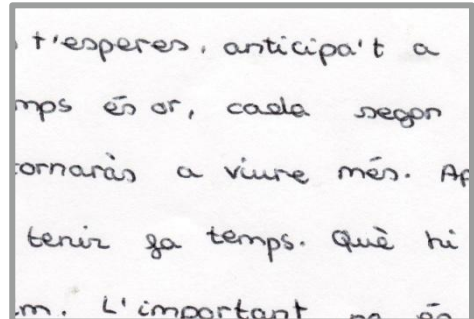 t'esperes, anticipa't a
mps és or, cada segon
ornaràs a viure més. Ap
tenir fa temps. Què hi
m. L'important no és